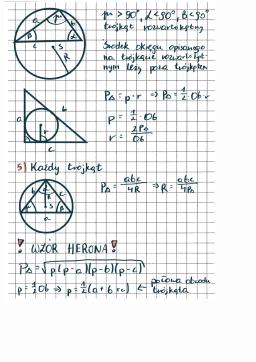 γ > 90°, α < 90°, β < 90°
trójkąt rozwartokątny
Środek okręgu opisanego
na trójkącie rozwartokąt-
nym leży poza trójkątem
P△ = p · r ⇒ P△ = ½ · Ob · r
p = ½ · Ob
r = 2P△ / Ob
5) Każdy trójkąt
P△ = abc / 4R ⇒ R = abc / 4P△
! WZÓR HERONA !
P△ = √p(p-a)(p-b)(p-c)
p = ½ Ob ⇒ p = ½(a+b+c) ← połowa obwodu
trójkąta